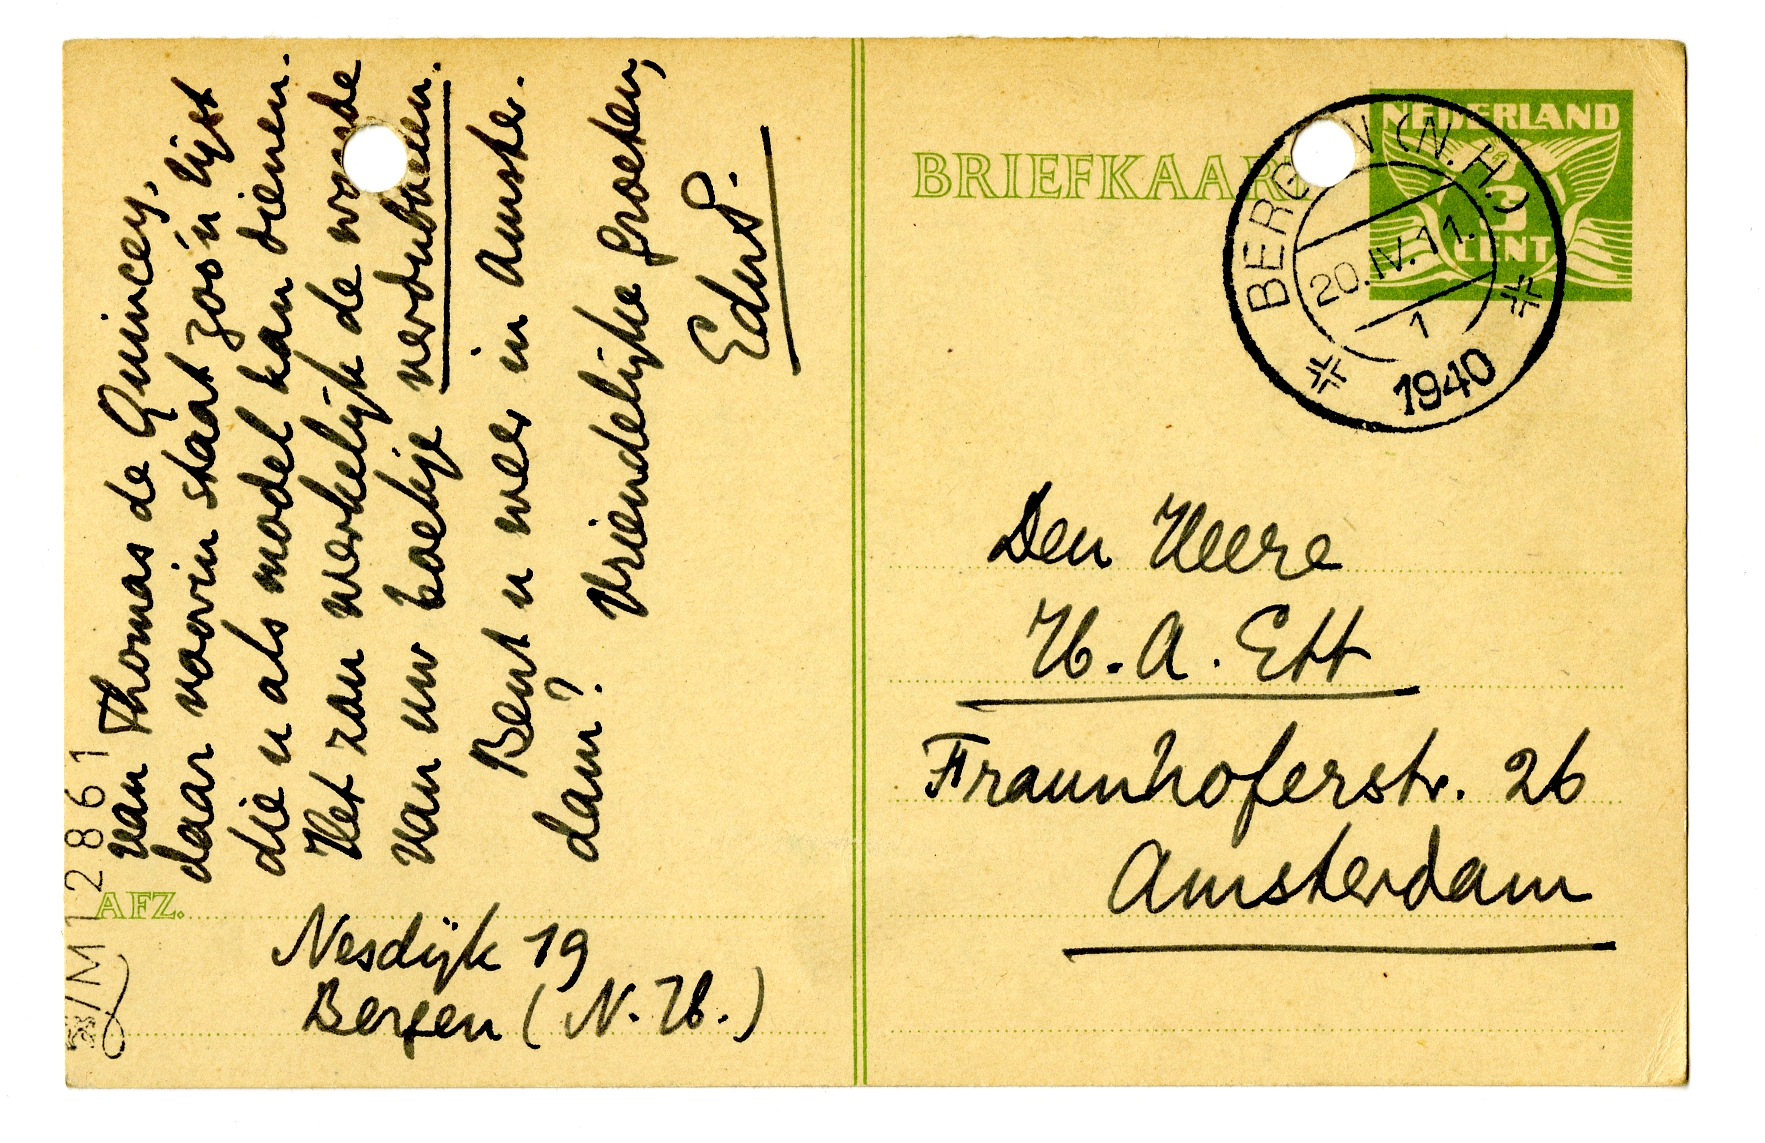 van Thomas de Quincey,
daar voorin staat zoo'n lijst
die u als model kan dienen.
Het zou werkelijk de waarde
van uw boekje verdubbelen.
Bent u weer in Amster-
dam?
Vriendelijke groeten,
EduP.
AFZ.
Nesdijk 19
Bergen (N.H.)
M12861
BRIEFKAART
NEDERLAND
3
CENT
BERGEN (N.H.)
20.IV.11.
1
1940
Den Heere
H.A. Ett
Fraunhoferstr. 26
Amsterdam